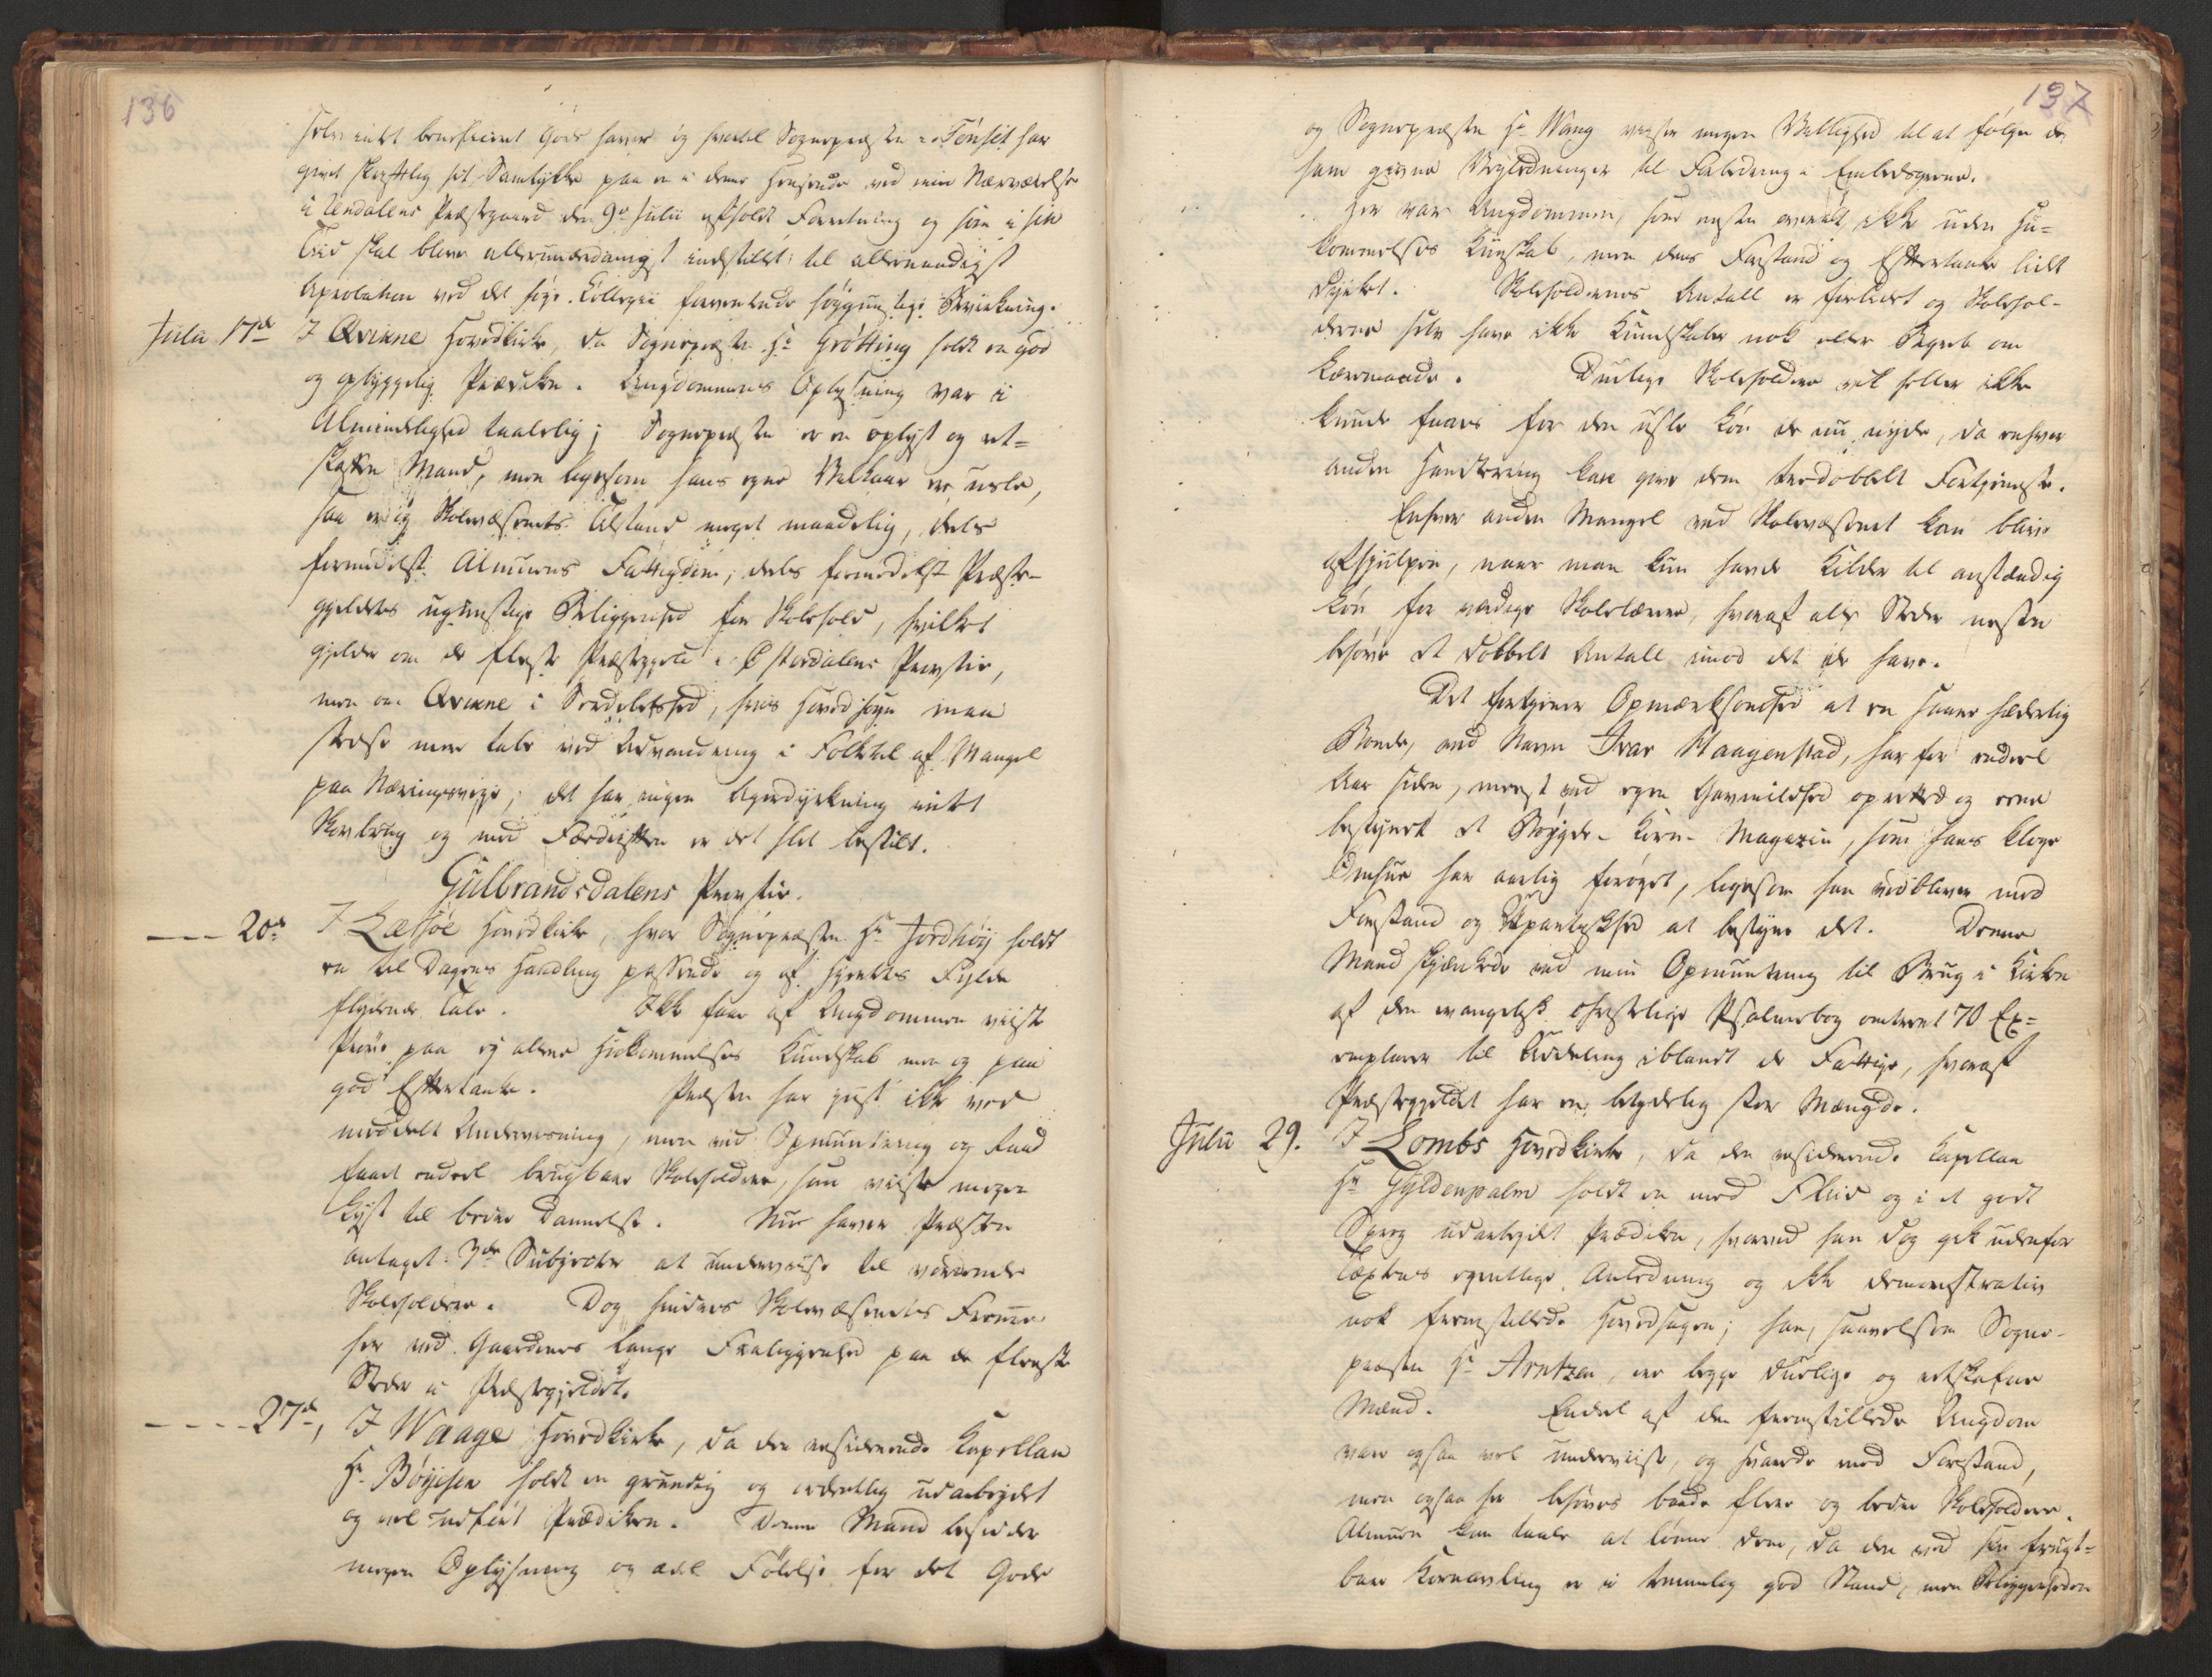 136
selv intet beneficeret Gods haver og hvortil Sognepræsten i Tønset har
givet skriftlig sit Samtykke paa en i denne Henseende ved min Nærværelse
i Rendalens Præstegaard den 9de Julii afholdt Forretning og som i sin
Tid skal blive allerunderdanigst indstillet til allernaadigst
Aprobation ved det høye Collegii forventende høygunstige Bevirkning.
Julii 17de I Qvikne Hovedkirke, da Sognepræsten Hr Grøtting holdt en god
og opbyggelig Prædiken. Ungdommens Oplysning var i
Almindelighed taalelig; Sognepræsten er en oplyst og ret-
skaffen Mand, men ligesom hans egne Velkaar er usle,
saa er og Skolevæsenets Tilstand meget maadelig, deels
formedelst Almuens Fattigdom, deels formedelst Præste-
gjeldets ugunstige Beliggenhed for Skolehold, hvilket
gjelder om de fleste Præstegjeld i Østerdalens Provstie,
men om Qvikne i Særdeleshed, hvis Hovedsogn maa
stedse mere tabe ved Udvandring i Folketal af Mangel
paa Næringsveye; det har ingen Agerdyrkning intet
Skovbrug og med Fædriften er det slet bestilt.
Gulbrandsdalens Provstie.
---- 20de I Læssøe Hovedkirke, hvor Sognepræsten Hr Jordhøy holdt
en til Dagens Handling passende og af Hjertets Fylde
flydende Tale. Ikke faae af Ungdommen viiste
Prøve paa ey allene Hukommelses Kundskab men og paa
god Eftertanke. Præsten har just ikke ved
middelt Underviisning, men ved Opmuntring og Raad
faaet endeel brugbare Skoleholdere, som viiste megen
Lyst til bedre Dannelse. Nu haver Præsten
antaget 3de Subjecter at underviise til vordende
Skoleholdere. Dog hindres Skolevæsenets Fremme
her ved Gaardenes lange Fraliggenhed paa de fleeste
Steder i Præstegjeldet.
---- 27de, I Waage Hovedkirke, da den residerende Kapellan
Hr Bøyesen holdt en grundig og ordentlig udarbeydet
og vel udført Prædiken. Denne Mand besidder
megen Oplysning og ædel Følelse for det Gode
137
og Sognepræsten Hr Wang viiste megen Villighed til at følge de
ham givne Veyledninger til Forbedring i Embedsgierne.
Her var Ungdommen, som næsten overalt, ikke uden Hu-
kommelses Kundskab, men dens Forstand og Eftertanke lidt
dyrket. Skoleholdernes Antall er forlidet og Skolehol-
derne selv have ikke Kundskaber nok eller Begreb om
Læremaade. Duelige Skoleholdere vil heller ikke
kunde faaes for den usle Løn de nu nyde, da enhver
anden Handtering kan give dem tredobbelt Fortjeneste.
Enhver anden Mangel ved Skolevæsenet kan blive
afhjulpen, naar man kun havde Kilder til anstændig
Løn for værdige Skolelærere, hvoraf alle Steder næsten
behøve et dobbelt Antall imod det de have.
Det fortjener Opmærksomhed at en saare hæderlig
Bonde, ved Navn Ivar Staagenstad, har for endeel
Aar siden, meest ved egen Gavmildhed oprettet og ene
bestyret et Bøygde-Korn-Magazin, som hans kloge
Omhue har aarlig forøget, ligesom han vedbliver med
Forstand og Upartiskhed at bestyre det. Denne
Mand skjænkede ved min Opmuntring til Brug i Kirken
af den evangelisk christelige Psalmebog omtrent 70 Ex-
emplarer til Uddeling iblandt de Fattige, hvoraf
Præstegjeldet har en betydelig stor Mængde.
Julii 29. I Lombs Hovedkirke, da den residerende Kapellan
Hr Gyldenpalm holdt en med Fliid og i et godt
Sprog udarbeydet Prædiken, hvorved han dog gik udenfor
Textens egentlige Anledning og ikke demonstrativ
nok fremstillede Hovedsagen; han, saavelsom Sogne-
præsten Hr Arntzen, ere begge duelige og retskafne
Mænd. Endeel af den fremstillede Ungdom
vare ogsaa vel underviiste, og svarede med Forstand,
men ogsaa her behøves baade flere og bedre Skoleholdere.
Almuen kan taale at lønne dem, da den ved sin frugt-
bare Kornavling er i temmelig god Stand, men Beliggenheden